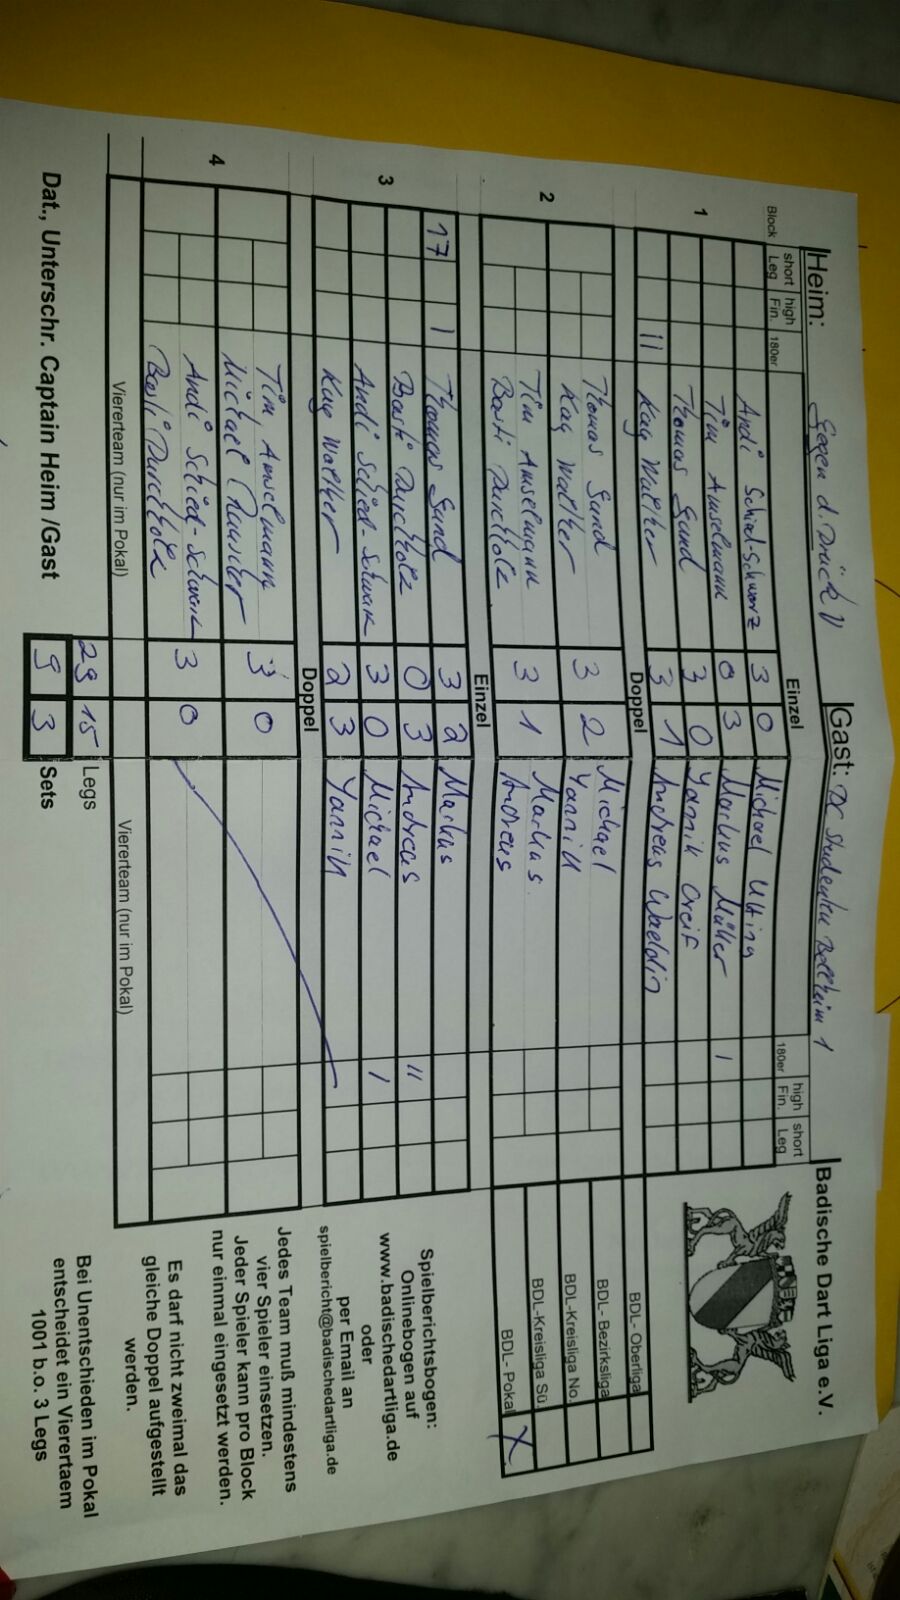 Heim: Gegen d. Drück V Gast: DC Studenten Bellheim 1 Badische Dart Liga e.V.
Block short Leg high Fin. 180er Einzel 180er high Fin. short Leg
1 Andi Schied-Schwarz 3 0 Michael
Tim Amselmann 0 3 Markus Müller I
Thomas Gund 3 0 Yannik
II Kay Walther 3 1 Andreas
Doppel
2 Thomas Gund 3 2 Michael
Kay Walther Yannik
Tim Amselmann 3 1 Markus
Basti Andreas
Einzel
3 17 I Thomas Gund 3 2 Markus
Basti 0 3 Andreas II
Andi Schied-Schwarz 3 0 Michael I
Kay Walther 2 3 Yannik
Doppel
4 Tim Amselmann 3 0
Michael
Andi Schied-Schwarz 3 0
Basti
Viererteam (nur im Pokal) Viererteam (nur im Pokal)
29 15 Legs
Dat., Unterschr. Captain Heim /Gast 9 3 Sets
BDL- Oberliga
BDL- Bezirksliga
BDL-Kreisliga No.
BDL-Kreisliga Sü.
BDL- Pokal X
Spielberichtsbogen:
Onlinebogen auf
www.badischedartliga.de
oder
per Email an
spielbericht@badischedartliga.de
Jedes Team muß mindestens
vier Spieler einsetzen.
Jeder Spieler kann pro Block
nur einmal eingesetzt werden.
Es darf nicht zweimal das
gleiche Doppel aufgestellt
werden.
Bei Unentschieden im Pokal
entscheidet ein Vierertaem
1001 b.o. 3 Legs